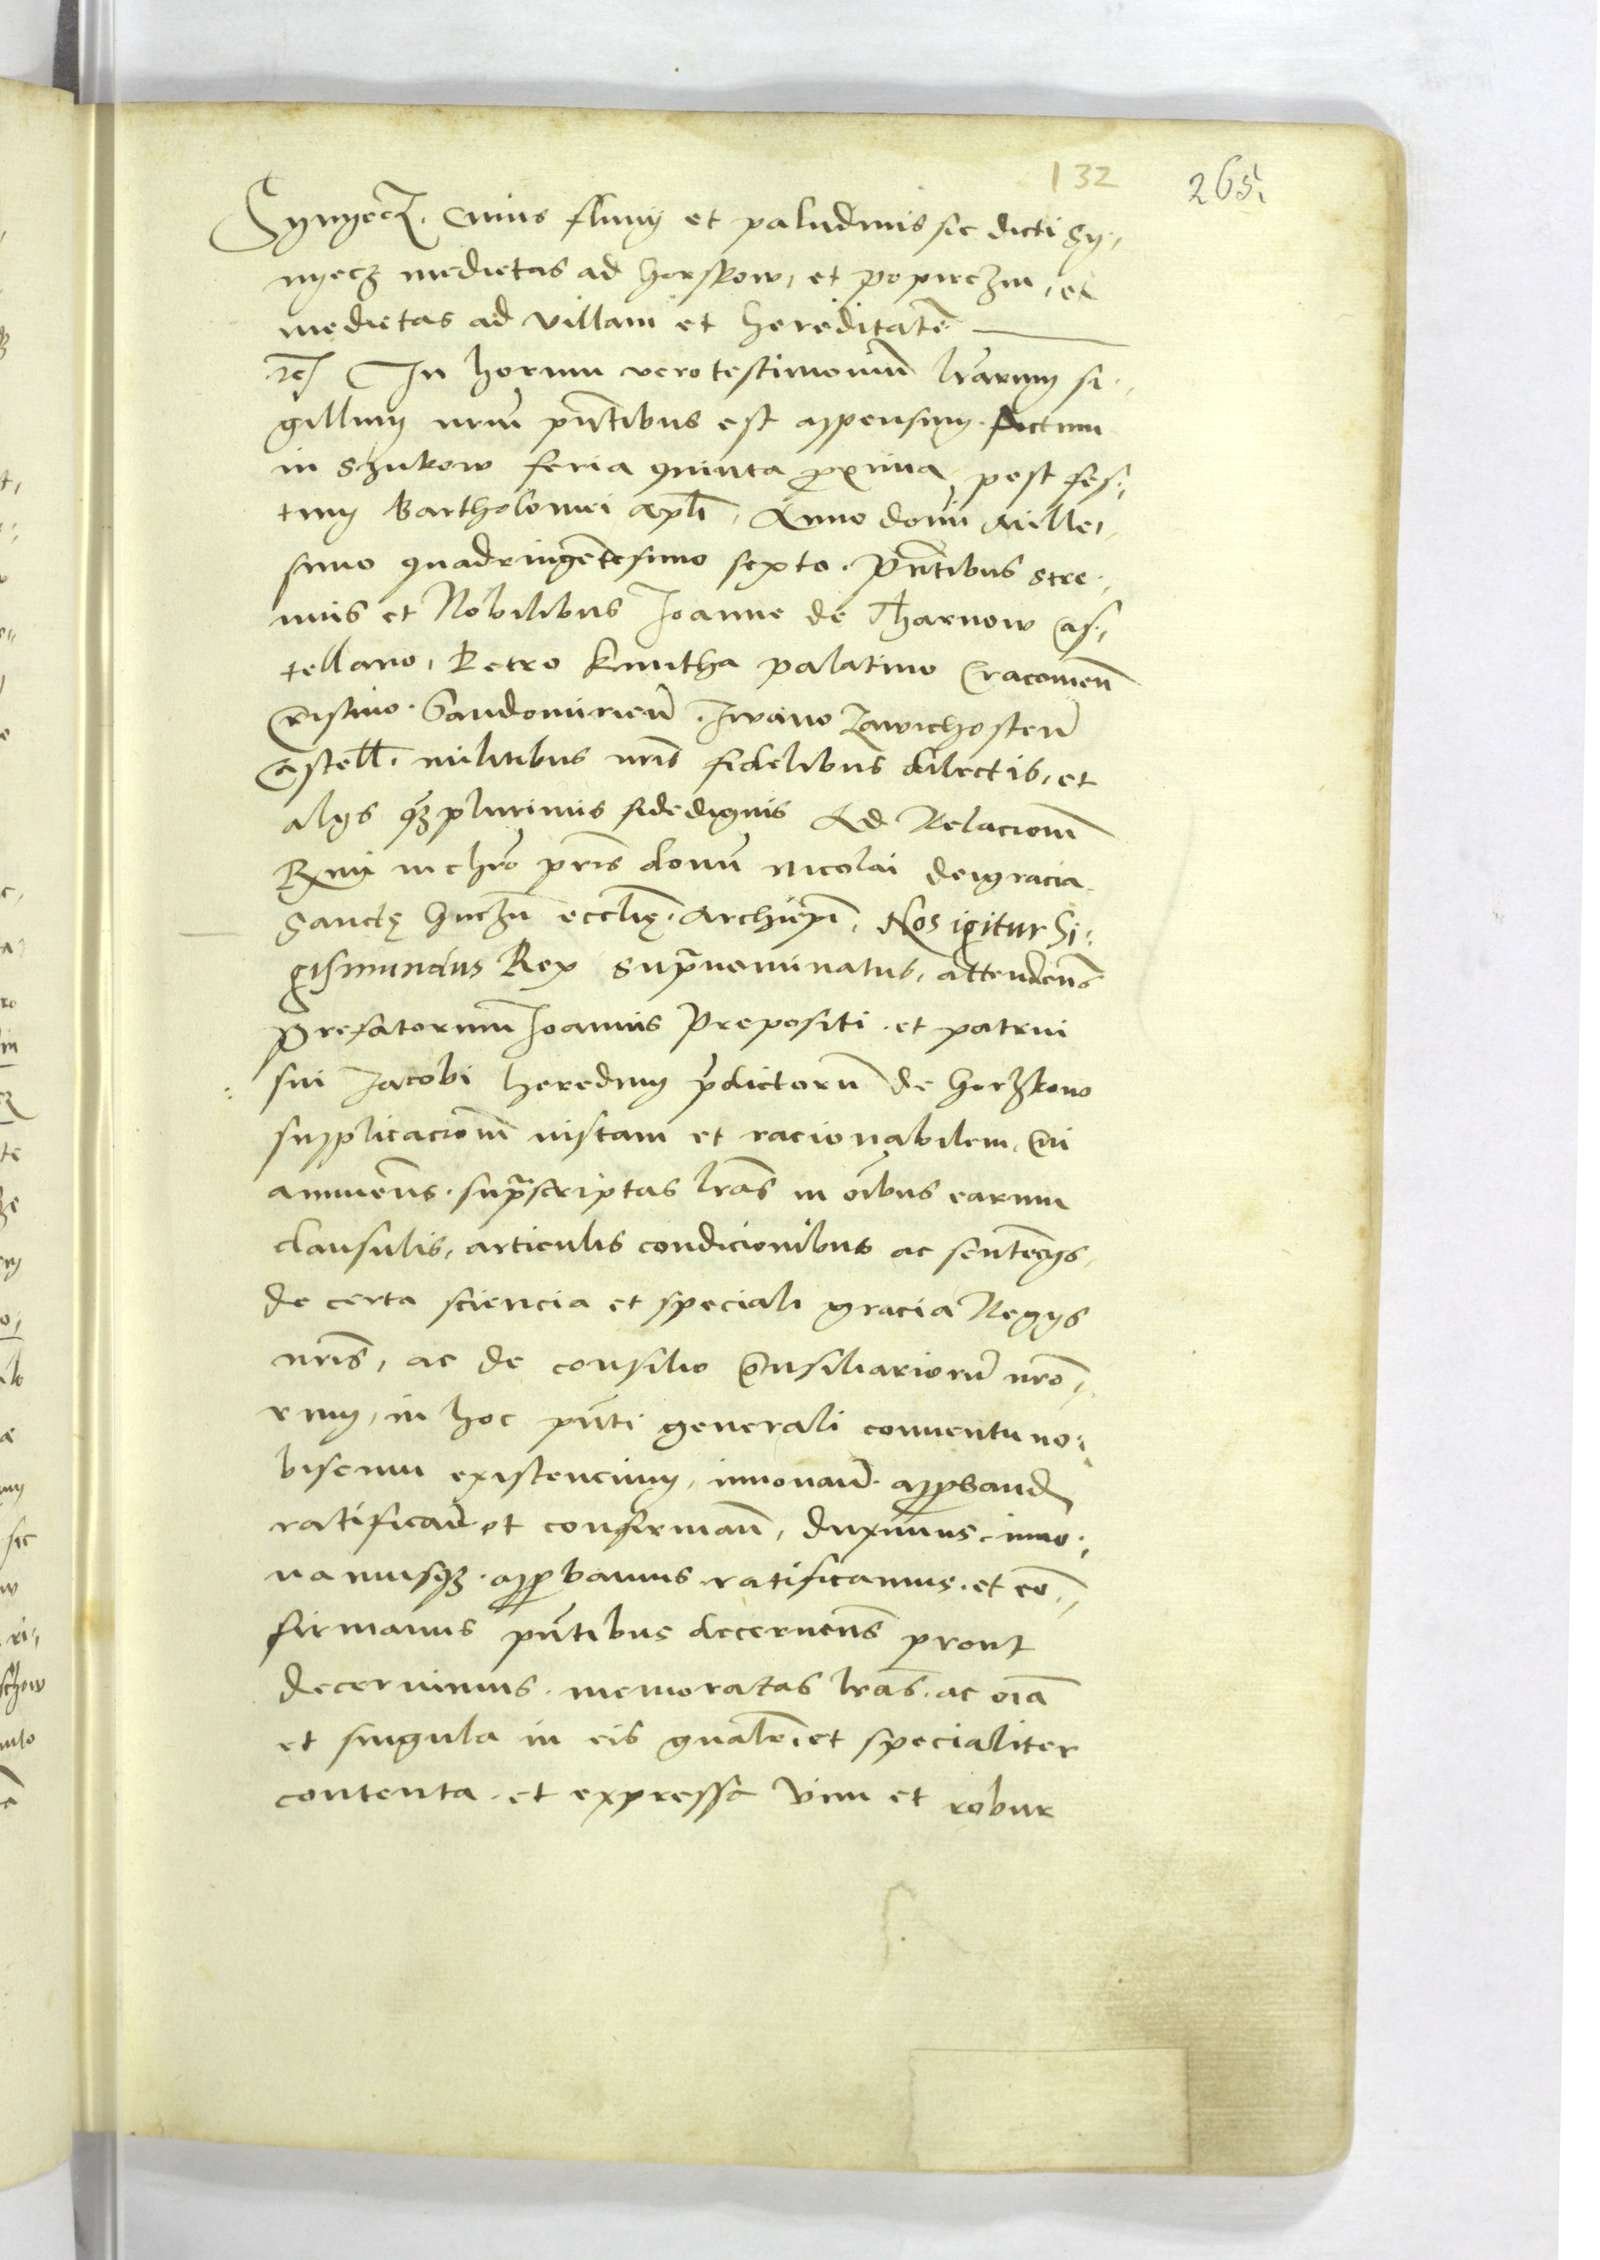 132
265.
Synyecz. Cuius fluuij et paludinis sic dicti Sy,,
nyecz medietas ad Horskow, et Popirczin, et
medietas ad villam et hereditatē
rc̄ In horum vero testimoniū lr̄arum si,,
gillum nr̄m pn̄tibus est appensum. Actum
in Szukow feria quinta proxima post fes,,
tum Bartholomei apl̄i, Anno domī Mille,,
simo quadringētesimo sexto. Pn̄tibus Stre,,
nuis et Nobilibus Joanne de Tharnow Cas,,
tellano, Petro Kmitha palatino Cracouien̄
Cristino Sandomirien̄. Iwano Zawichosten̄
Castell̄. militibus nr̄is fidelibus dilectis, et
alijs qz plurimis fidedignis Ad Relacionē
Rmi in chr̄o pr̄is domī Nicolai dei gracia
Sanctę Gnezn̄ eccl̄ię Archiep̄i, Nos igitur Si,,
gismundus Rex supranominatus, attendentes
prefatorum Joannis Prepositi et patrui
sui Jacobi heredum p̄dictorū de Horzkow
supplicacionē iustam et racionabilem, Cui
annuen̄s. sup̄scriptas lr̄as in oībus earum
clausulis, articulis condicionibus ac sentēcijs,
de certa sciencia et speciali gracia Regijs
nr̄is, ac de consilio Cōnsiliariorū nr̄o,,
rum, in hoc pn̄ti generali conuentu no,,
biscum existencium, innouan̄. approband
ratifican̄ et confirman̄, duximus, inno,,
uamusqz. approbamus ratificamus. et cō,,
firmamus pn̄tibus decernen̄s prout
decernimus. memoratas lr̄as. ac oīa
et singula in eis gn̄alit̄er et specialiter
contenta. et expressa vim et robur